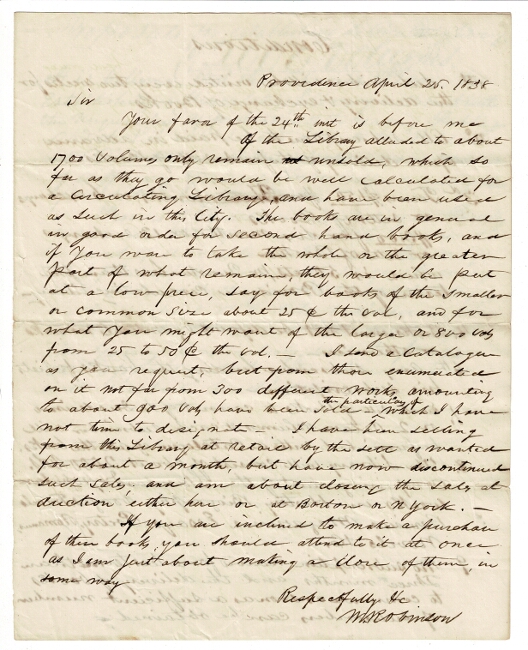 Providence April 25. 1838
Sir
Your favor of the 24th inst is before me
Of the Library alluded to about
1700 Volumes only remain unsold, which so
far as they go would be well calculated for
a Circulating Library, and have been used
as such in this City. The books are in general
in good order for second hand books, and
if You were to take the whole or the greater
part of what remain, they would be put
at a low price, say for books of the smaller
or common size about 25 ¢ the vol, and for
what You might want of the larger or 8vo vols
from 25 to 50 ¢ the vol. — I send a Catalogue
as you request, but from those enumerated
on it not far from 300 different works amounting
to about 900 vols have been sold — the particulars of which I have
not time to designate — I have been selling
from this Library at retail by the sett as wanted
for about a month, but have now discontinued
such sales and am about closing the sales at
auction either here or at Boston or N York. —
If you are inclined to make a purchase
of these books, you should attend to it at once
as I am just about making a close of them in
some way
Respectfully &c
W R Robinson